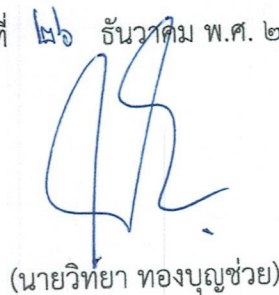 ที่ ๒๖ ธันวาคม พ.ศ. ๒
(นายวิทยา ทองบุญช่วย)